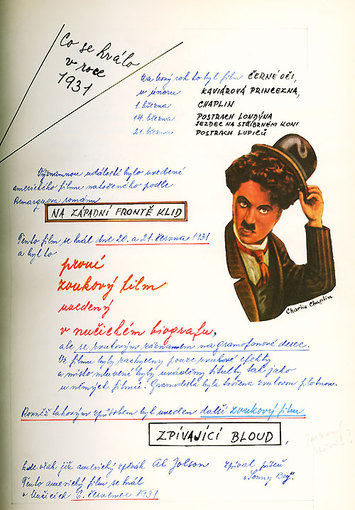 Co se hrálo
v roce
1931
Na Nový rok to byl film ČERNÉ OČI,
v únoru KAVIÁROVÁ PRINCEZNA,
1. března CHAPLIN
14. března POSTRACH LONDÝNA
JEZDEC NA STŘÍBRNÉM KONI
21. března POSTRACH LUPIČŮ
Významnou událostí bylo uvedení
amerického filmu natočeného podle
Remarqueova románu
NA ZÁPADNÍ FRONTĚ KLID
Tento film se hrál dne 20. a 21. června 1931
a byl to
první
zvukový film
uvedený
v nučickém biografu,
ale se zvukovým záznamem na gramofonové desce.
Ve filmu byly zachyceny pouze zvukové efekty
a místo mluvené byly uváděny titulky tak jako
u němých filmů. Gramodeska byla
Charlie Chaplin
Rovněž takovým způsobem byl uveden další zvukový film
ZPÍVAJÍCÍ BLOUD,
kde však již americký zpěvák Al Jolson zpíval píseň
Tento americký film se hrál "Sonny Boy".
v Nučicích 6. července 1931